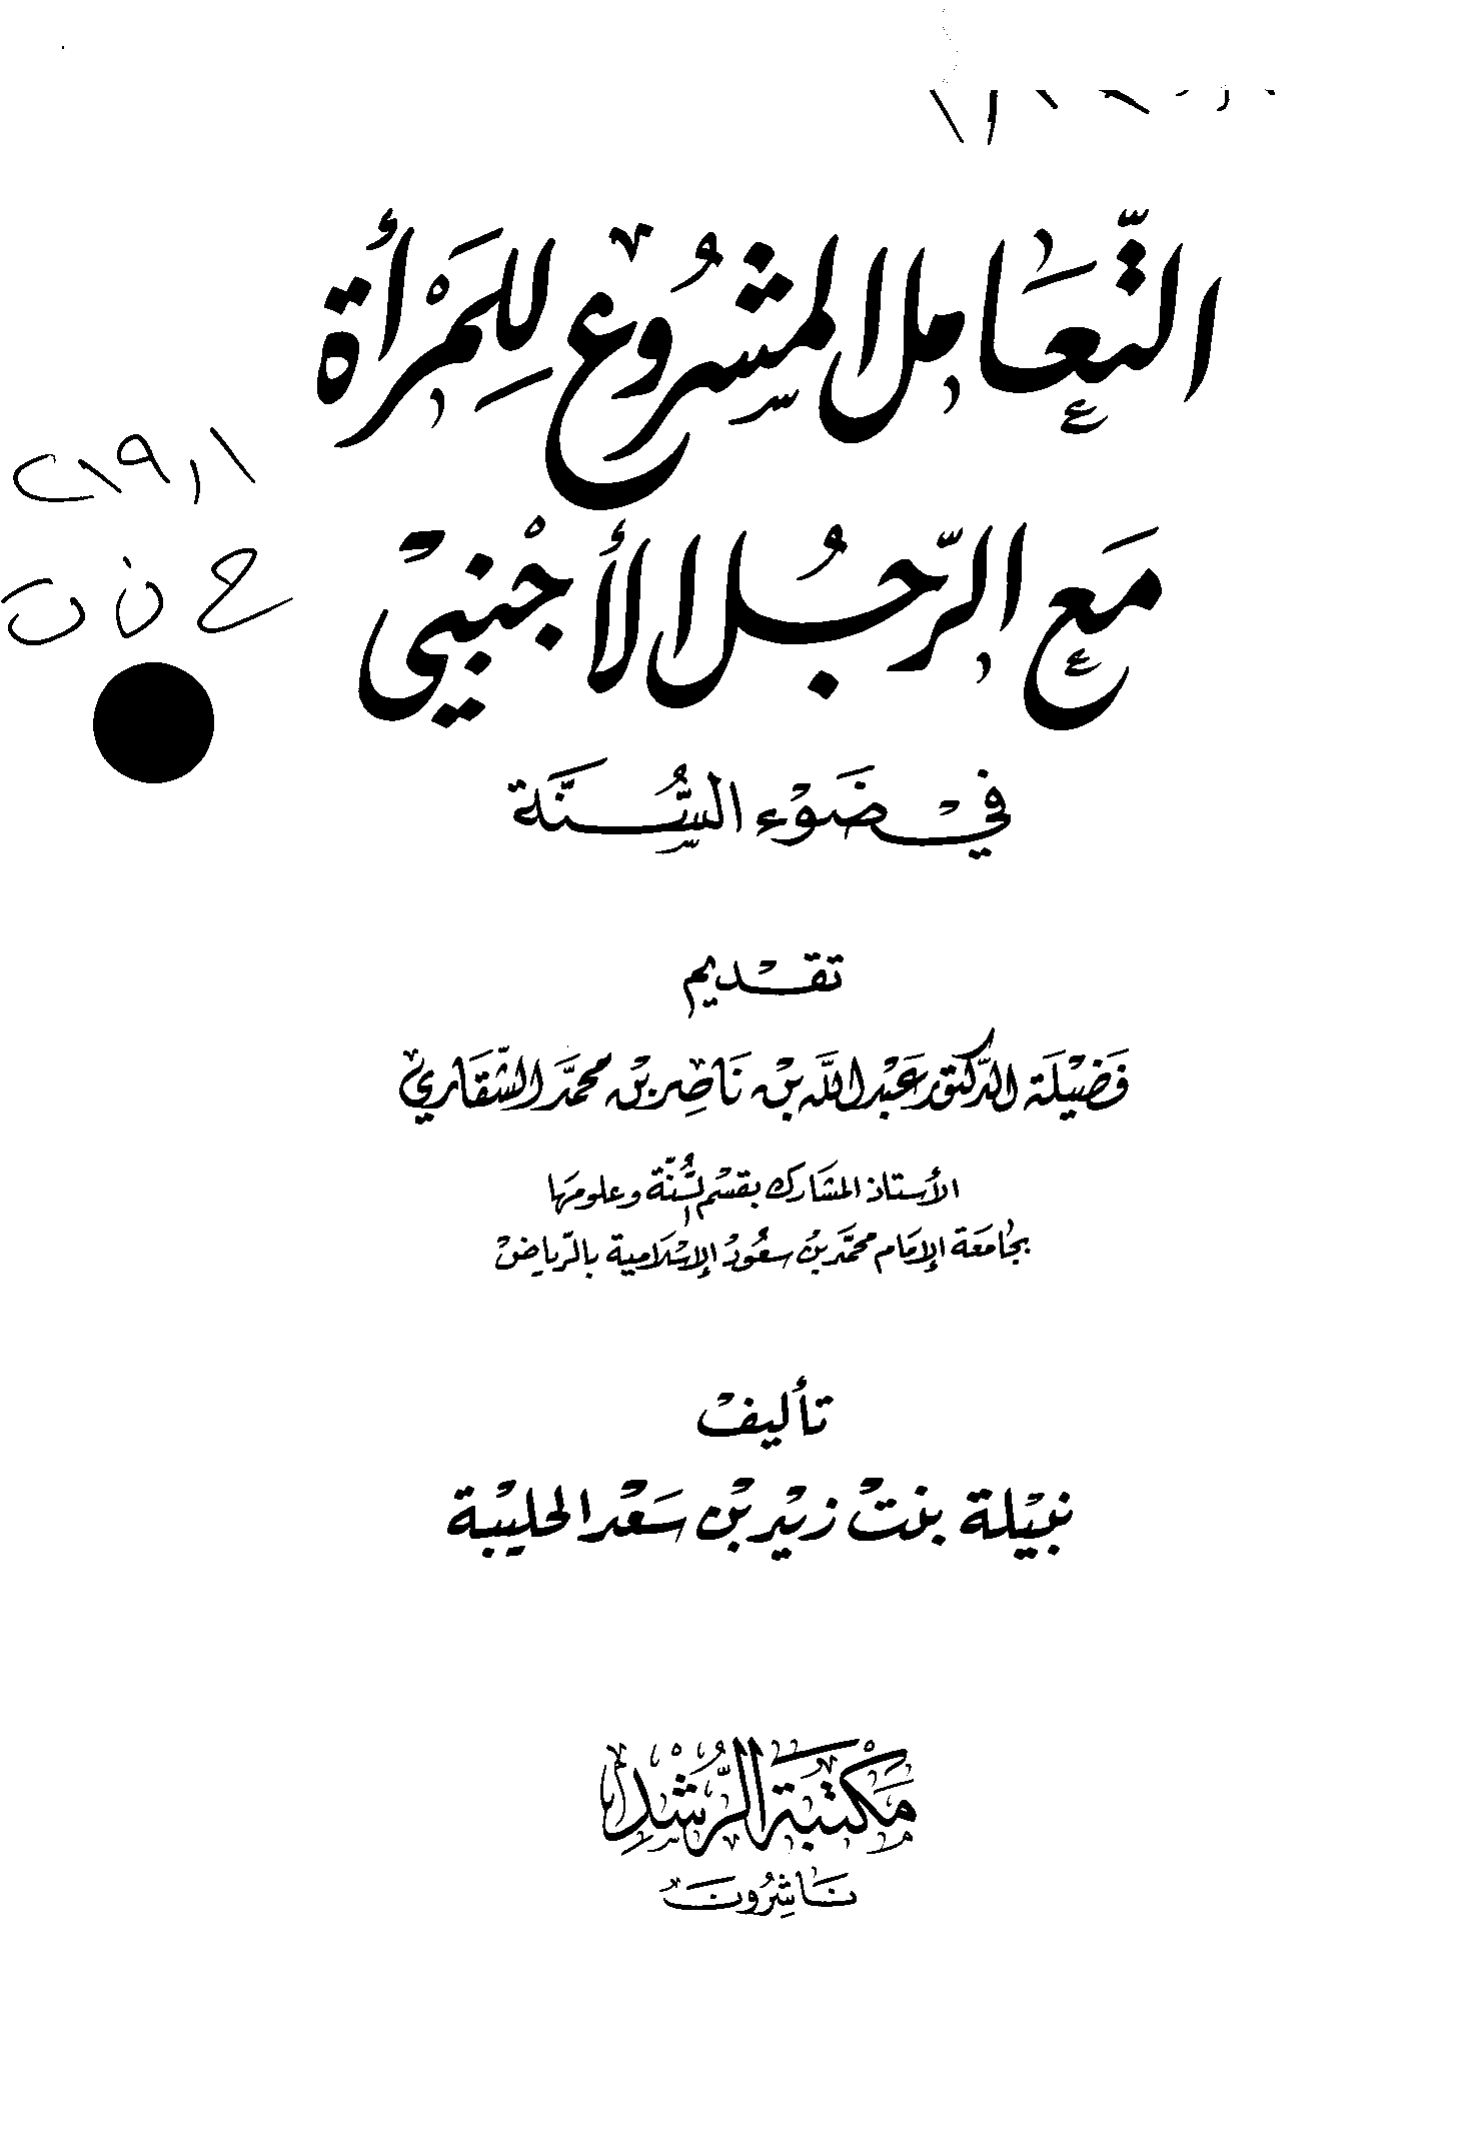 التَّعَامل المشْرُوع لِلمَرْأة
٢١٩,١
مَع الرّجُل الأجْنبيْ
ح ن ت
فيْ ضَوْء السُّنَّة
تقْديم
فَضيْلَة الدّكتور عَبْد اللَّه بنْ نَاصِر بنْ محمَّد الشّقَاريْ
الأستاذ المشَارك بقسْم السُّنّة وعلومهَا
بجَامعَة الإمَام محمَّد بنْ سعُودْ الإسْلامية بالرّياضْ
تأليفْ
نبيْلة بنتْ زيْد بنْ سَعْد الحليْبة
مَكْتبَة الرُّشْدِ
نَاشِرُونَ